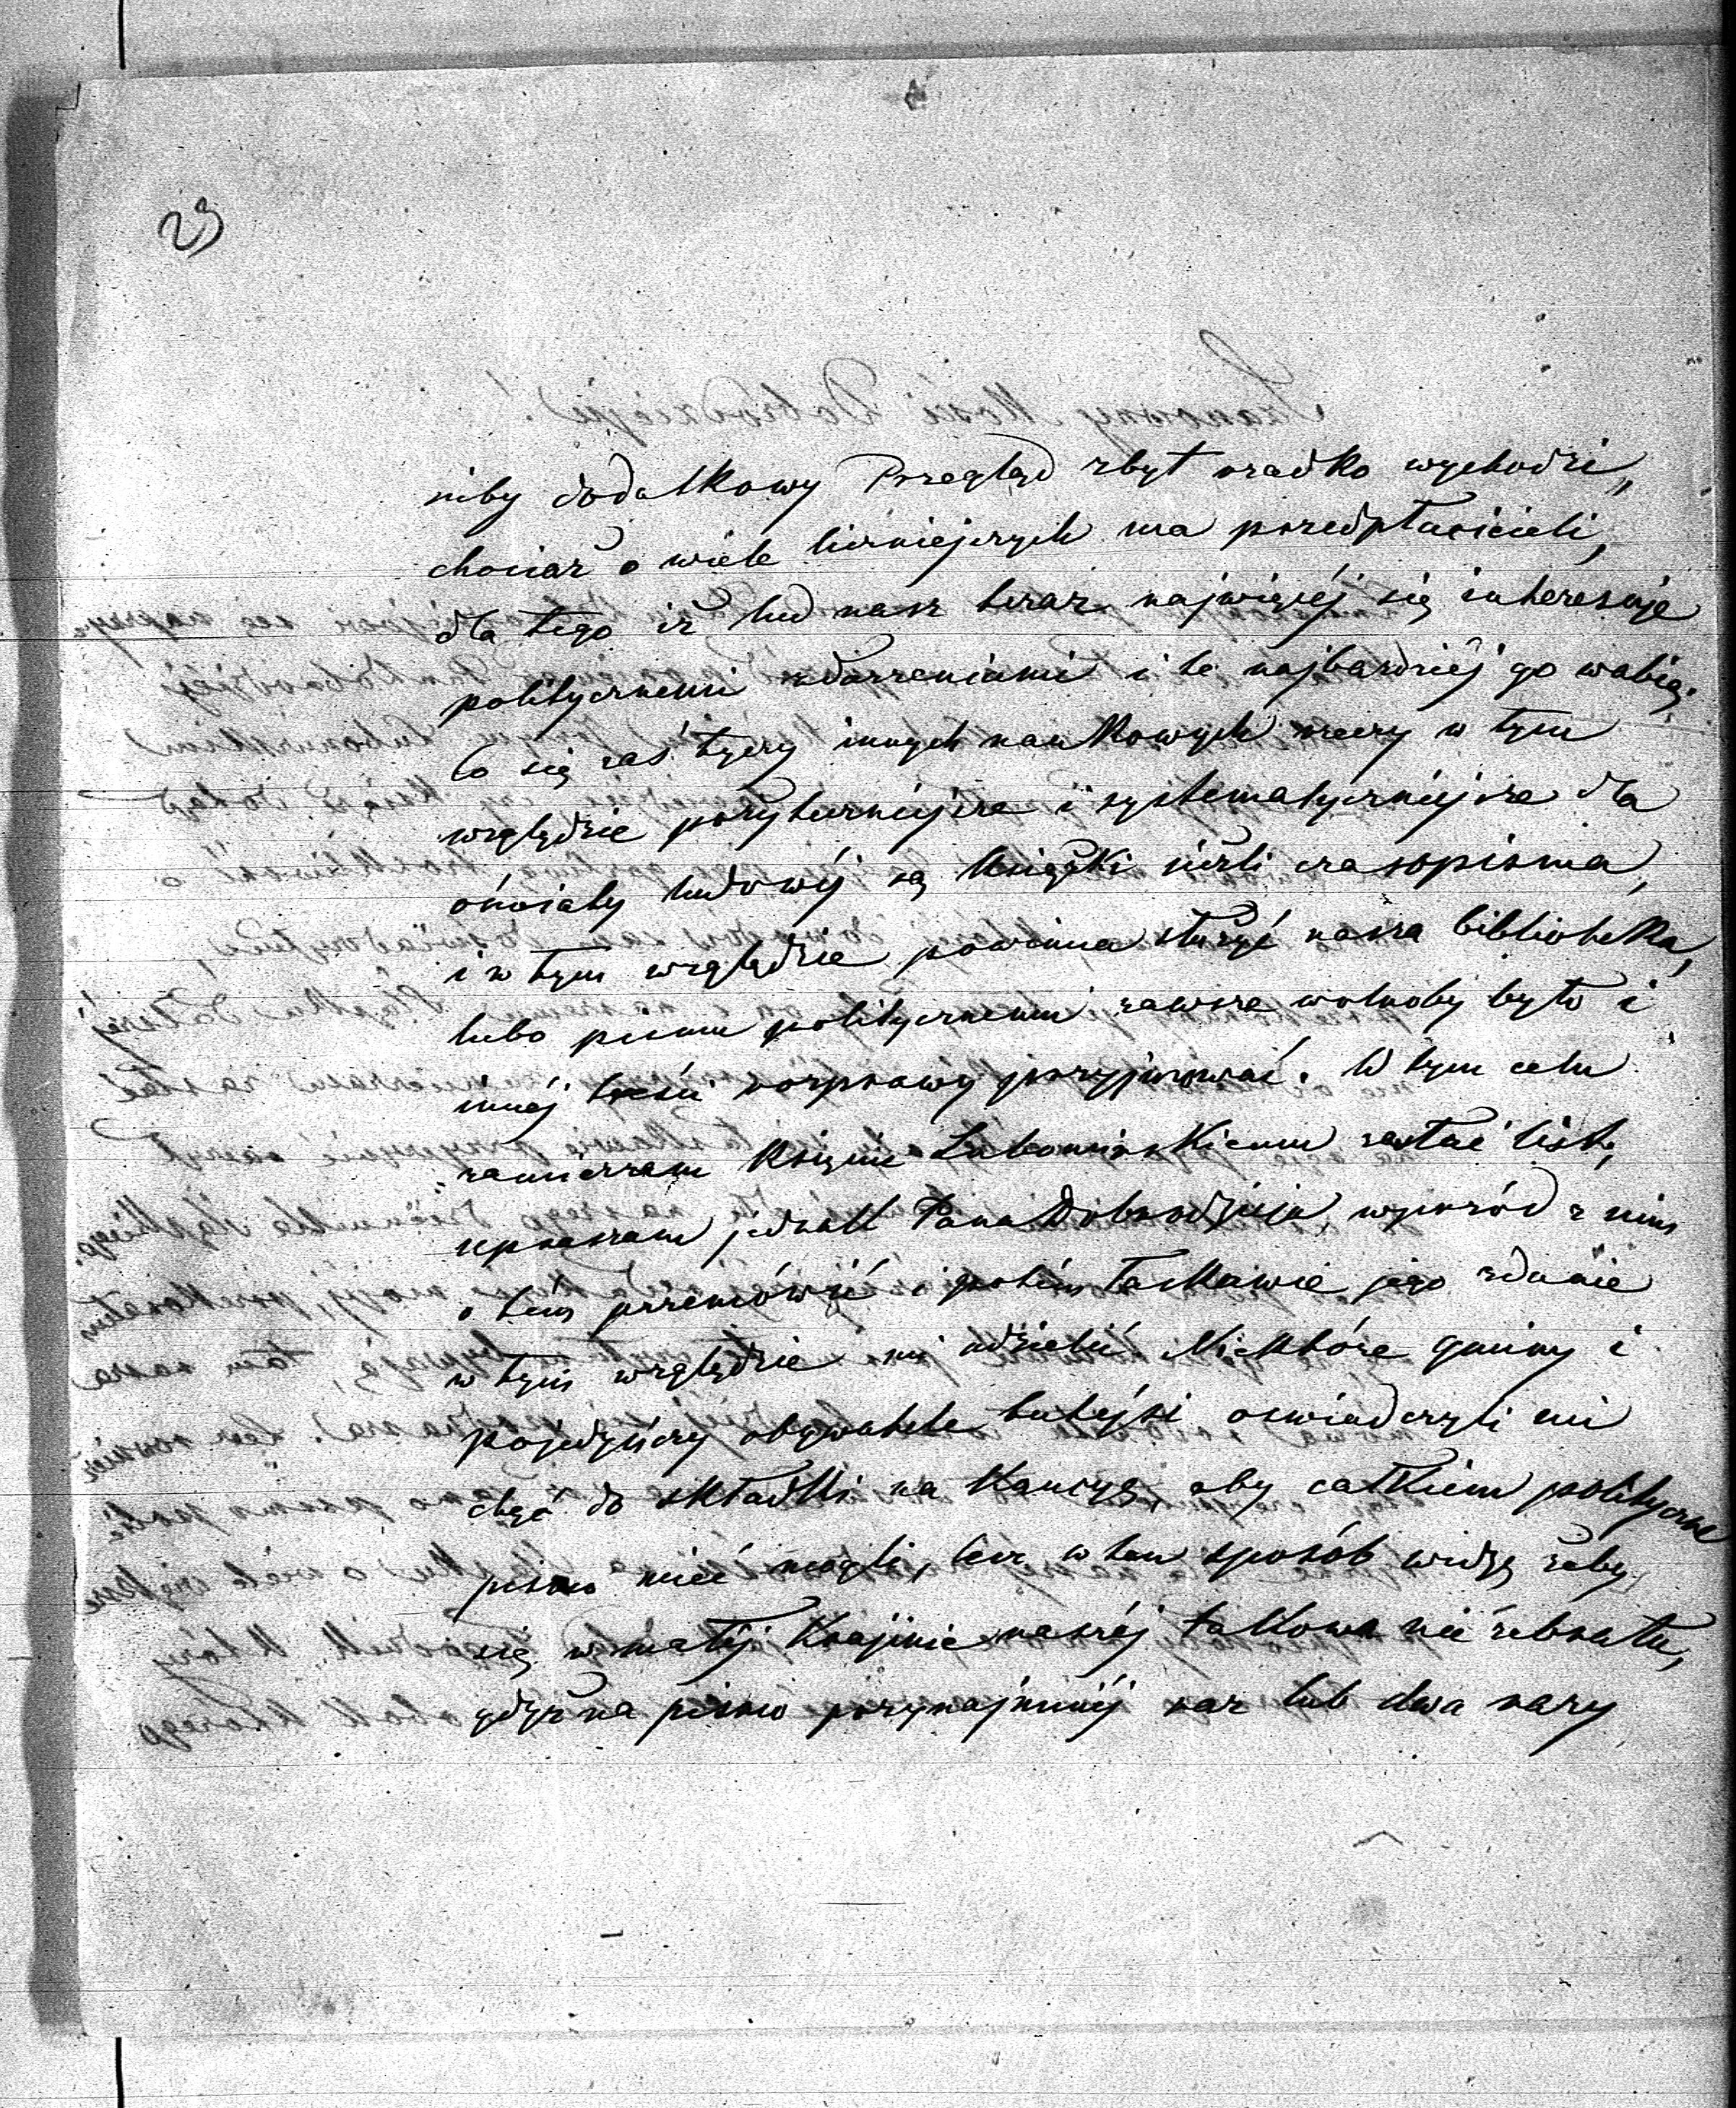 23
niby dodatkowy Przegląd zbyt rzadko wychodzi,
chociaż o wiele liczniejszych ma przedpłacicieli,
dla tego iż lud nasz teraz najwięcéj się interesuje
politycznemi zdarzeniami i te najbardziéj go wabią.
Co się zaś tyczy innych naukowych rzeczy w tym
względzie pożyteczniejsze i systematyczniejsze dla
oświaty ludowéj są książki niżli czasopisma,
i w tym względzie powinna służyć nasza biblioteka,
lubo pismu politycznemu zawsze wolnoby było i
innéj treści rozprawy przyjmować. W tym celu
zamierzam Księciu Lubomirskiemu zesłać listę,
upraszam jednak Pana Dobrodzieja wyprzód z nim
o tém przemówić i potém łaskawie jego zdanie
w tym względzie mi udzielić. Niektóre gminy i
pojedyńczy obywatele tutejsi oświadczyli mi
chęć do składki na kaucyą, aby całkiem polityczne
pismo mieć mogli, lecz w ten sposób widzę żeby
się w małéj krajinie naszéj takowa nie zebrała,
gdyż na pismo przynajmniéj raz lub dwa razy